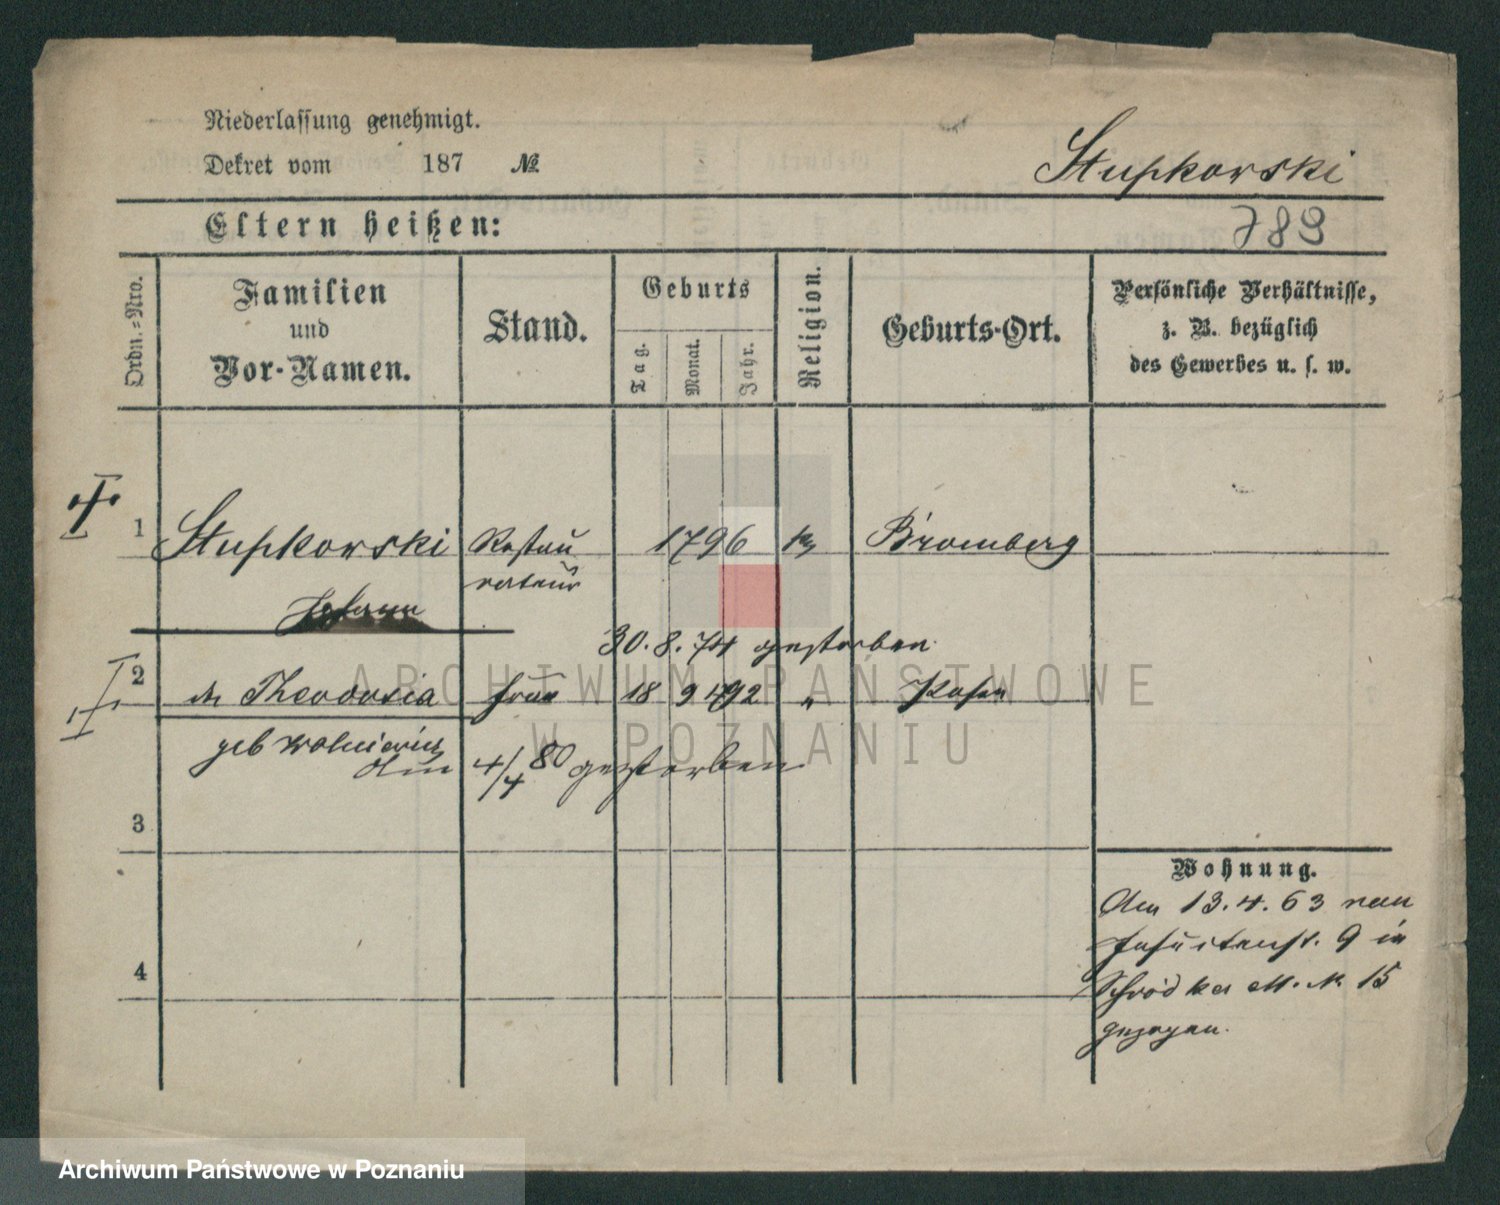 Niederlassung genehmigt.
Dekret vom 187 №
Stupkorski
Eltern heißen:
789
Ordn.=Nro.
Familien und Vor-Namen.
Stand.
Geburts
Tag.
Monat.
Jahr.
Religion.
Geburts-Ort.
Persönliche Verhältnisse,
z. B. bezüglich
des Gewerbes u. s. w.
1 Stupkorski Restau 1796 Bromberg
rateur
Johann
30. 8. 74 gestorben
2 Theodosia Frau 18 9 92 " Posen
geb
am 4/4 80 gestorben
3
4
Wohnung.
Am 13. 4. 63 von
Jesuitenst. 9 in
Schrodka M. N. 15
gezogen.
ARCHIWUM PAŃSTWOWE
W POZNANIU
Archiwum Państwowe w Poznaniu